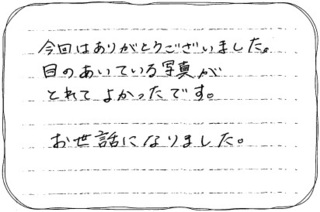 今回はありがとうございました。
目のあいている写真が
とれて よかったです。
お世話になりました。